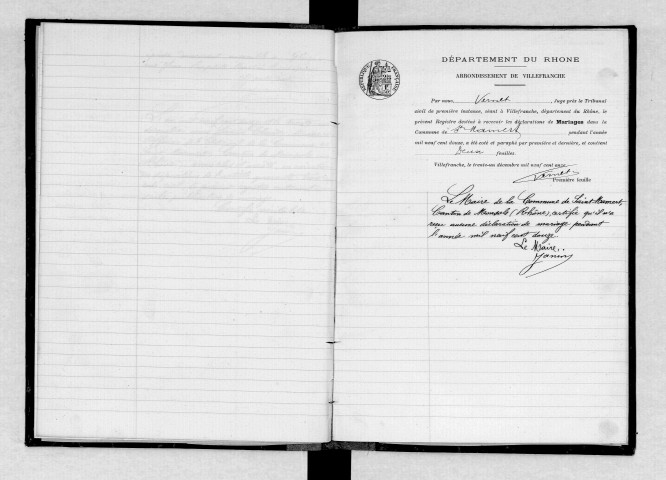 DÉPARTEMENT DU RHONE
ARRONDISSEMENT DE VILLEFRANCHE
Par nous Vernet, Juge près le Tribunal
civil de première instance, séant à Villefranche, département du Rhône, le
présent Registre destiné à recevoir les déclarations de Mariages dans la
Commune de St Mamert pendant l'année
mil neuf cent douze, a été coté et paraphé par première et dernière, et contient
Deux feuilles.
Villefranche, le trente-un décembre mil neuf cent onze
Vernet
Première feuille
Le Maire de la Commune de Saint Mamert
Canton de Monsols (Rhône), certifie qu'il n'a
reçu aucune déclaration de mariage pendant
l'année mil neuf cent douze.
Le Maire.